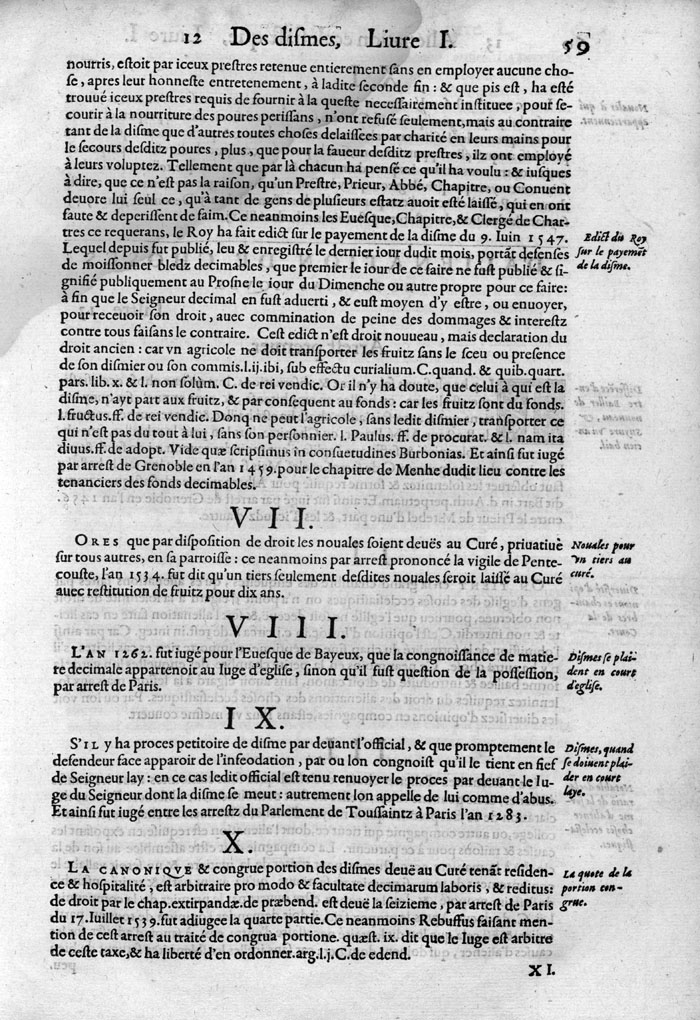 12 Des dismes, Liure I. 59
nourris, estoit par iceux prestres retenue entierement sans en employer aucune cho-
se, apres leur honneste entretenement, à ladite seconde fin: & que pis est, ha esté
trouué iceux prestres requis de fournir à la queste necessairement instituee, pour se-
courir à la nourriture des poures perissans, n'ont refusé seulement, mais au contraire
tant de la disme que d'autres toutes choses delaissees par charité en leurs mains pour
le secours desditz poures, plus, que pour la faueur desditz prestres, ilz ont employé
à leurs voluptez. Tellement que par là chacun ha pensé ce qu'il ha voulu: & iusques
à dire, que ce n'est pas la raison, qu'un Prestre, Prieur, Abbé, Chapitre, ou Conuent
deuore lui seul ce, qu'à tant de gens de plusieurs estatz auoit esté laissé, qui en ont
faute & deperissent de faim. Ce neanmoins les Euesque, Chapitre, & Clergé de Char-
tres ce requerans, le Roy ha fait edict sur le payement de la disme du 9. Iuin 1547.
Edict du Roy
sur le payemēt
de la disme.
Lequel depuis fut publié, leu & enregistré le dernier iour dudit mois, portāt defenses
de moissonner bledz decimables, que premier le iour de ce faire ne fust publié & si-
gnifié publiquement au Prosne le iour du Dimenche ou autre propre pour ce faire:
à fin que le Seigneur decimal en fust aduerti, & eust moyen d'y estre, ou enuoyer,
pour receuoir son droit, auec commination de peine des dommages & interestz
contre tous faisans le contraire. Cest edict n'est droit nouueau, mais declaration du
droit ancien: car vn agricole ne doit transporter les fruitz sans le sceu ou presence
de son dismier ou son commis. l. ij. ibi, sub effectu curialium. C. quand. & quib. quart.
pars. lib. x. & l. non solùm. C. de rei vendic. Or il n'y ha doute, que celui à qui est la
disme, n'ayt part aux fruitz, & par consequent au fonds: car les fruitz sont du fonds.
l. fructus. ff. de rei vendic. Donq ne peut l'agricole, sans ledit dismier, transporter ce
qui n'est pas du tout à lui, sans son personnier. l. Paulus. ff. de procurat. & l. nam ita
diuus. ff. de adopt. Vide quæ scripsimus in consuetudines Burbonias. Et ainsi fut iugé
par arrest de Grenoble en l'an 1459. pour le chapitre de Menhe dudit lieu contre les
tenanciers des fonds decimables.
VII.
ORES que par disposition de droit les nouales soient deuës au Curé, priuatiuè
sur tous autres, en sa parroisse: ce neanmoins par arrest prononcé la vigile de Pente-
couste, l'an 1534. fut dit qu'un tiers seulement desdites nouales seroit laissé au Curé
auec restitution de fruitz pour dix ans.
Nouales pour
vn tiers au
curé.
VIII.
L'AN 1262. fut iugé pour l'Euesque de Bayeux, que la congnoissance de matie-
re decimale appartenoit au Iuge d'eglise, sinon qu'il fust question de la possession,
par arrest de Paris.
Dismes se plai-
dent en court
d'eglise.
IX.
S'IL y ha proces petitoire de disme par deuant l'official, & que promptement le
defendeur face apparoir de l'infeodation, par ou lon congnoist qu'il le tient en fief
de Seigneur lay: en ce cas ledit official est tenu renuoyer le proces par deuant le Iu-
ge du Seigneur dont la disme se meut: autrement lon appelle de lui comme d'abus.
Et ainsi fut iugé entre les arrestz du Parlement de Toussaintz à Paris l'an 1283.
Dismes, quand
se doiuent plai-
der en court
laye.
X.
LA CANONIQVE & congrue portion des dismes deuë au Curé tenāt residen-
ce & hospitalité, est arbitraire pro modo & facultate decimarum laboris, & reditus:
de droit par le chap. extirpandæ. de præbend. est deuë la seizieme, par arrest de Paris
du 17. Iuillet 1539. fut adiugee la quarte partie. Ce neanmoins Rebuffus faisant men-
tion de cest arrest au traité de congrua portione. quæst. ix. dit que le Iuge est arbitre
de ceste taxe, & ha liberté d'en ordonner. arg. l. j. C. de edend.
La quote de la
portion con-
grue.
XI.